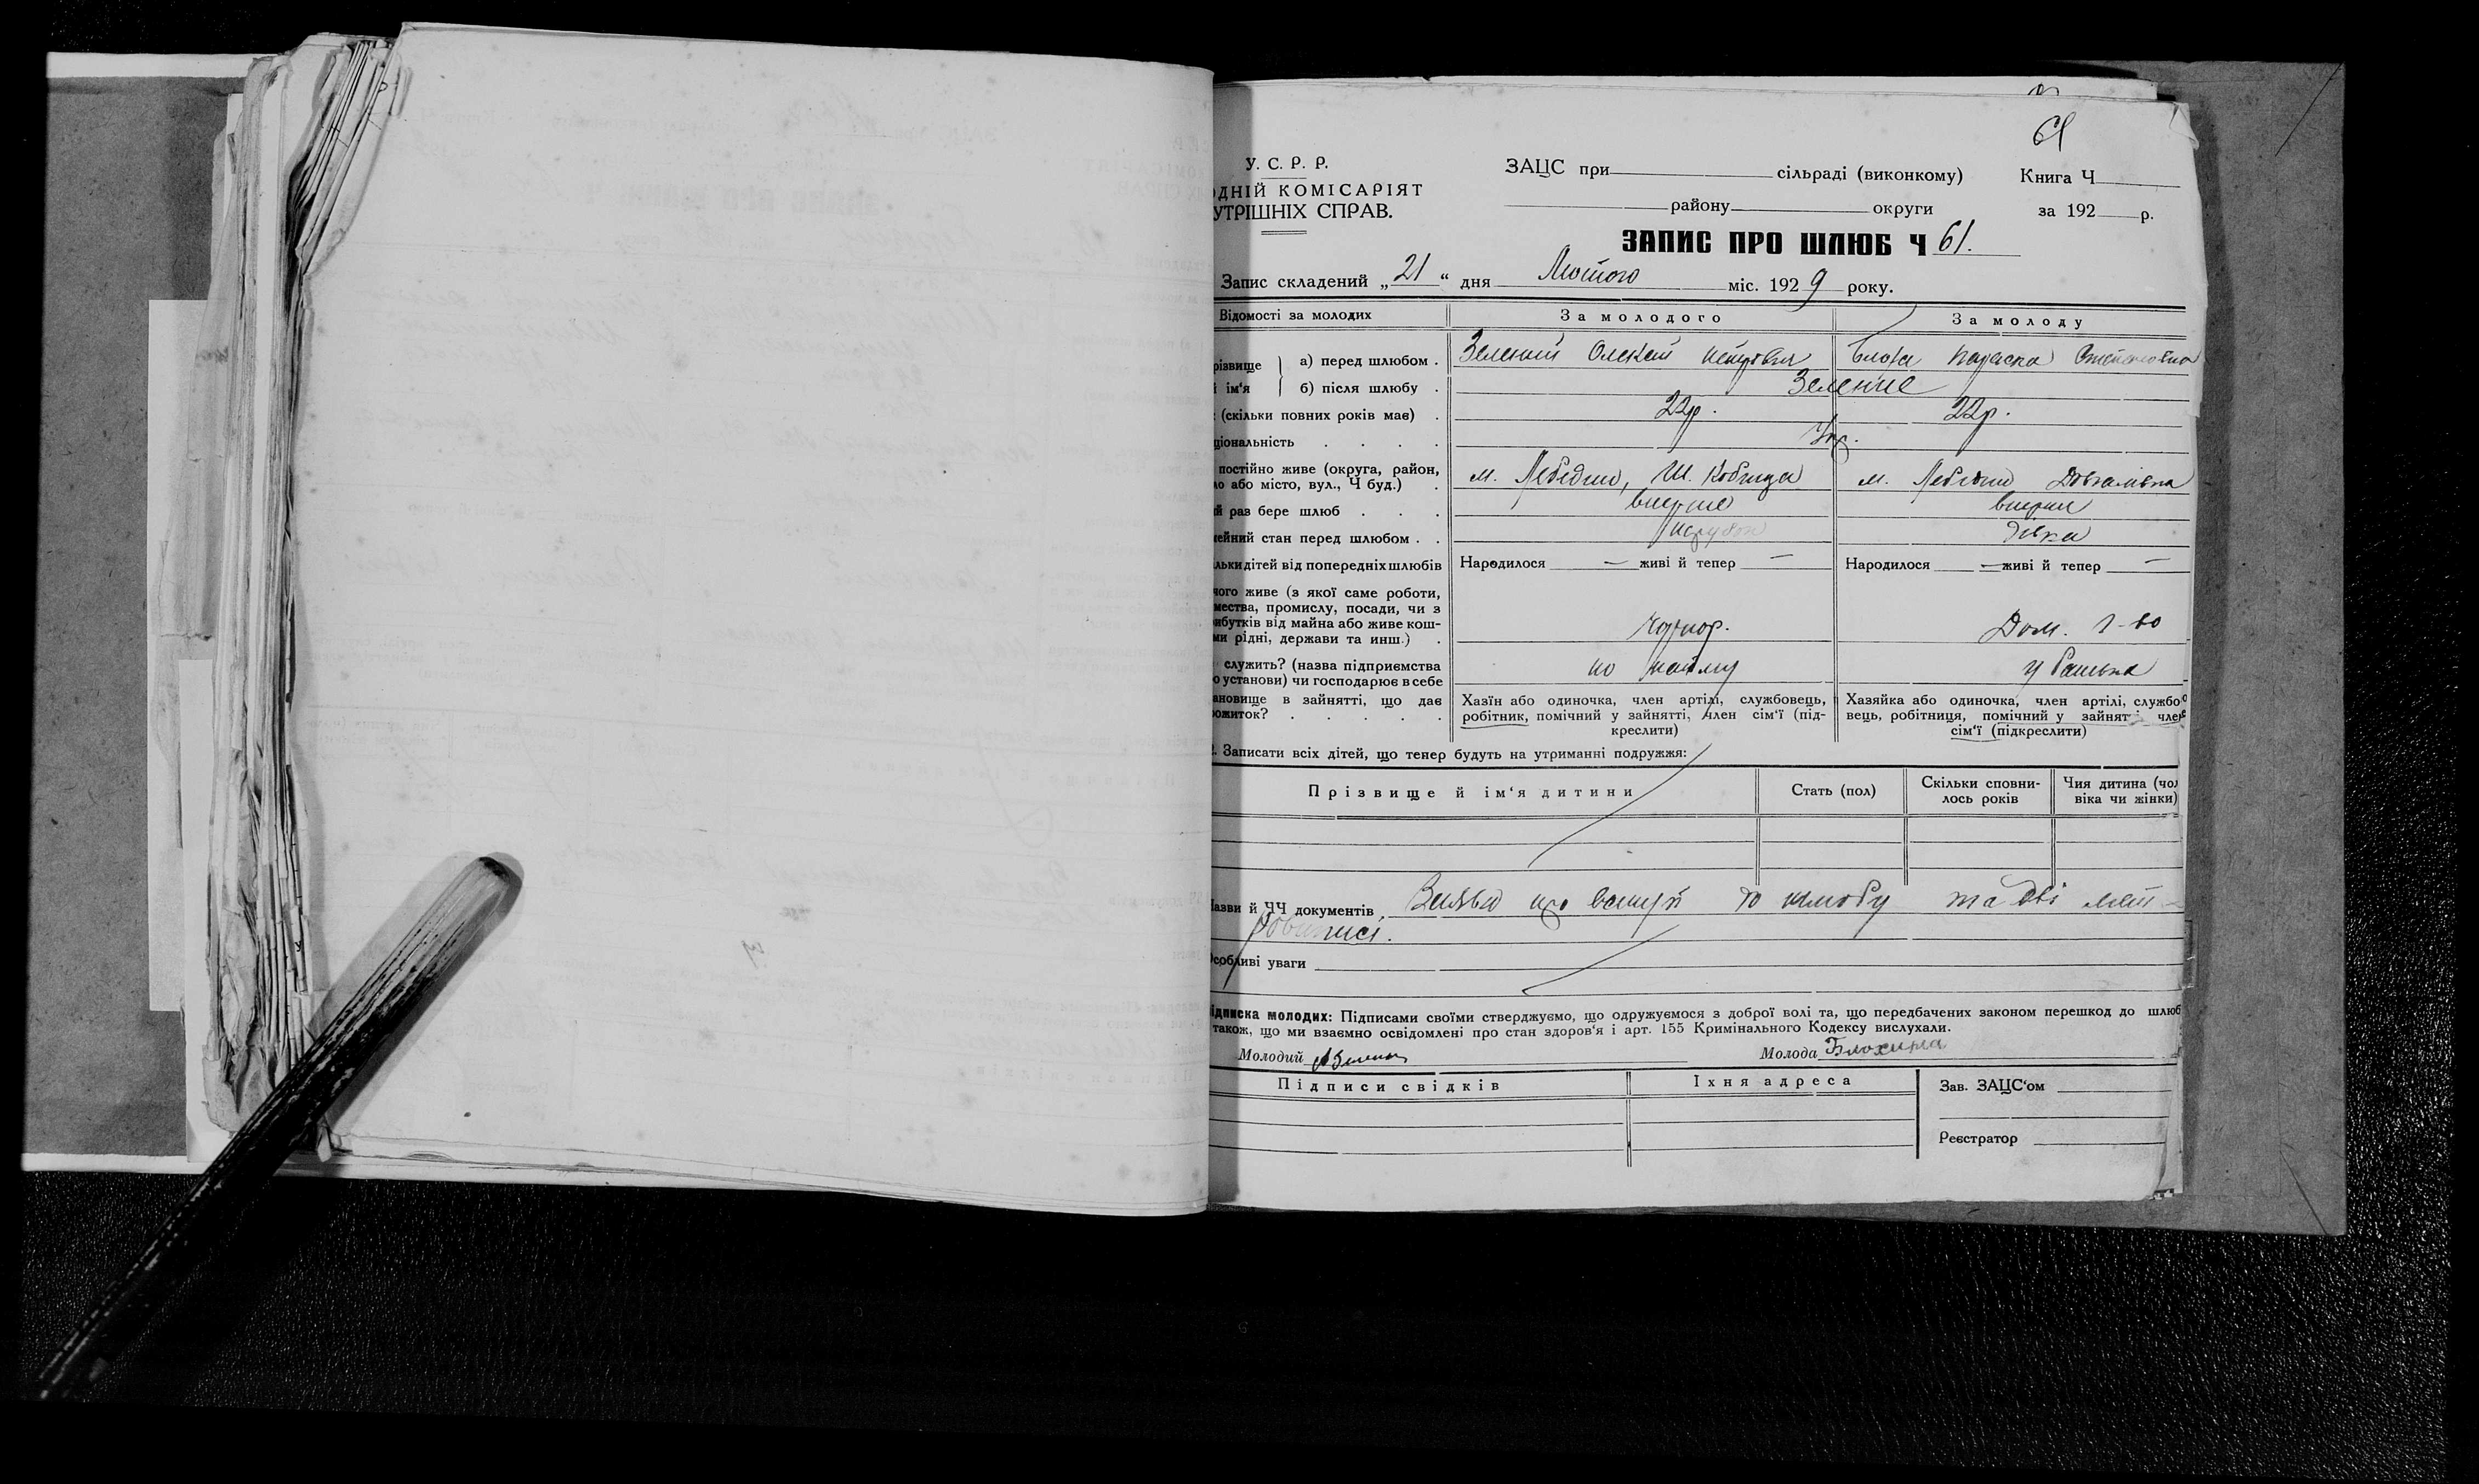 61
У. С. Р. Р.
ОДНІЙ КОМІСАРІЯТ
УТРІШНІХ СПРАВ.
ЗАЦС при сільраді (виконкому)
Книга Ч
району округи
за 192 р.
ЗАПИС ПРО ШЛЮБ Ч 61.
Запис складений „21“ дня Лютого міс. 1929 року.
Відомості за молодих
За молодого
За молоду
різвище й ім‘я
а) перед шлюбом .
Зелений Олексій Петрович
Блоха Параска Степановна
б) після шлюбу .
Зеление
(скільки повних років має) .
22р.
22р.
ціональність . . . .
Укр.
постійно живе (округа, район,
ло або місто, вул., Ч буд.) .
м. Лебедин, Ш. Кобища
м. Лебедин Довгалівка
й раз бере шлюб . . .
вперше
вперше
мейний стан перед шлюбом . .
парубок
дівка
лькидітей від попередніхшлюбів
Народилося — живі й тепер —
Народилося — живі й тепер —
чого живе (з якої саме роботи,
мества, промислу, посади, чи з
ибутків від майна або живе кош-
ми рідні, держави та инш.) .
Чорнор.
Дом. г-во
служить? (назва підприємства
о установи) чи господарює в себе
по найму
у батька
ановище в зайнятті, що дає
рожиток? . . . . .
Хазїн або одиночка, член артілі, службовець,
робітник, помічний у зайнятті, член сім‘ї (під-
креслити)
Хазяйка або одиночка, член артілі, службо
вець, робітниця, помічний у зайнят член
сім‘ї (підкреслити)
2. Записати всіх дітей, що тепер будуть на утриманні подружжя:
Прізвище й ім‘я дитини
Стать (пол)
Скільки сповни-
лось років
Чия дитина (чол
віка чи жінки)
Назви й ЧЧ документів.
Заява про вступ до шлюбу та дві мет-
ровиписі.
Особливі уваги
Підписка молодих: Підписами своїми стверджуємо, що одружуємося з доброї волі та, що передбачених законом перешкод до шлюб
також, що ми взаємно освідомлені про стан здоров‘я і арт. 155 Кримінального Кодексу вислухали.
Молодий
Молода
Підписи свідків
Їхня адреса
Зав. ЗАЦС‘ом
Реєстратор